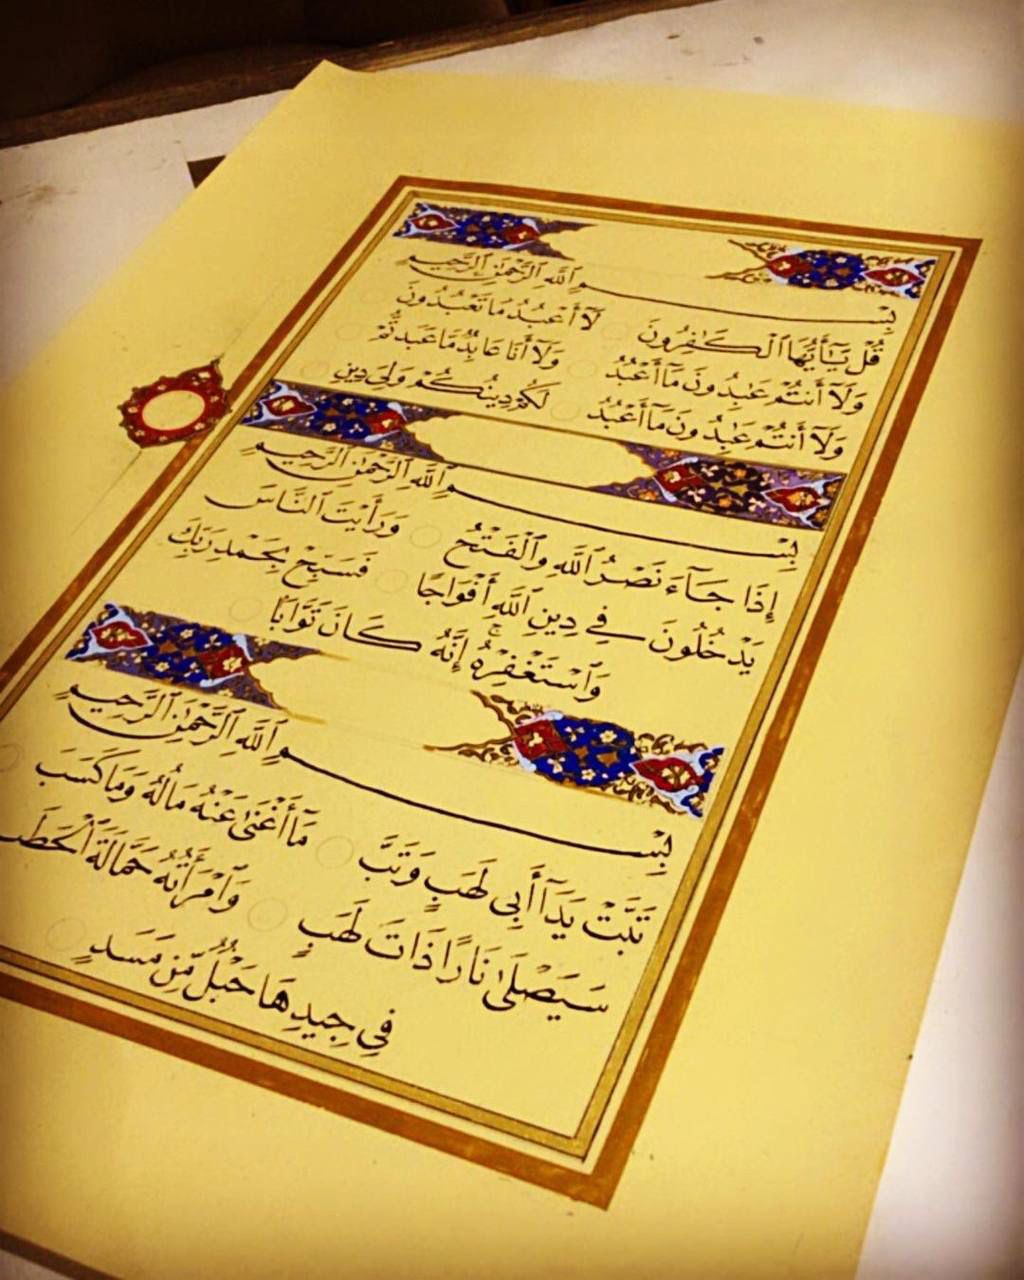 بِسْمِ ٱللَّهِ ٱلرَّحْمَٰنِ ٱلرَّحِيمِ
قُلْ يَٰٓأَيُّهَا ٱلْكَٰفِرُونَ لَآ أَعْبُدُ مَا تَعْبُدُونَ
وَلَآ أَنتُمْ عَٰبِدُونَ مَآ أَعْبُدُ وَلَآ أَنَا۠ عَابِدٌ مَّا عَبَدتُّمْ
وَلَآ أَنتُمْ عَٰبِدُونَ مَآ أَعْبُدُ لَكُمْ دِينُكُمْ وَلِىَ دِينِ
بِسْمِ ٱللَّهِ ٱلرَّحْمَٰنِ ٱلرَّحِيمِ
إِذَا جَآءَ نَصْرُ ٱللَّهِ وَٱلْفَتْحُ وَرَأَيْتَ ٱلنَّاسَ
يَدْخُلُونَ فِى دِينِ ٱللَّهِ أَفْوَاجًا فَسَبِّحْ بِحَمْدِ رَبِّكَ
وَٱسْتَغْفِرْهُ ۚ إِنَّهُۥ كَانَ تَوَّابًۢا
بِسْمِ ٱللَّهِ ٱلرَّحْمَٰنِ ٱلرَّحِيمِ
تَبَّتْ يَدَآ أَبِى لَهَبٍ وَتَبَّ مَآ أَغْنَىٰ عَنْهُ مَالُهُۥ وَمَا كَسَبَ
سَيَصْلَىٰ نَارًا ذَاتَ لَهَبٍ وَٱمْرَأَتُهُۥ حَمَّالَةَ ٱلْحَطَبِ
فِى جِيدِهَا حَبْلٌ مِّن مَّسَدٍۭ